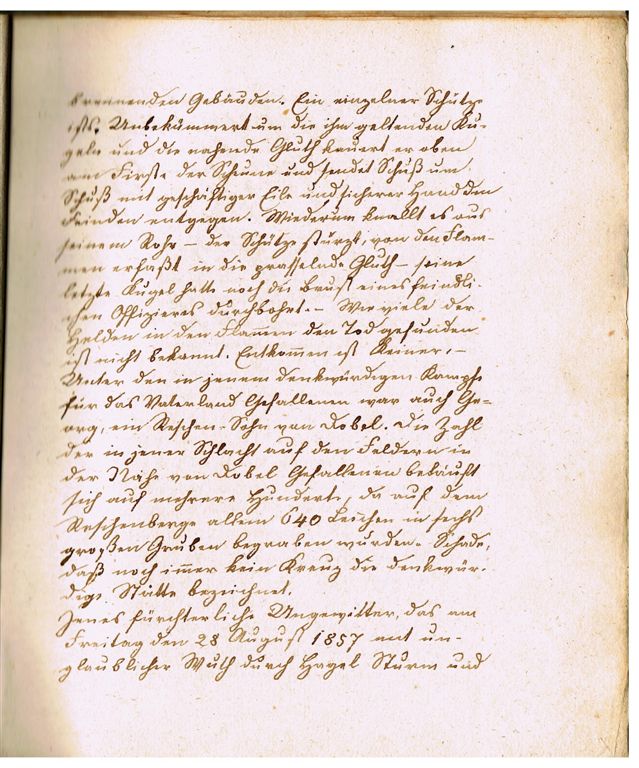 brennenden Gebäuden. Ein einzelner Schütze
ists. Unbekümmert um die ihm geltenden Ku-
geln und die nahende Gluth kauert er oben
am Firste der Scheune und sendet Schuß um
Schuß mit geschäftiger Eile und sicherer Hand den
Feinden entgegen. Wiederum knallt es aus
seinem Rohr – der Schütze stürzt, von den Flam-
men erfaßt in die prasselnde Gluth – seine
letzte Kugel hatte noch die Brust eines feindli-
chen Offizieres durchbohrt. – Wie viele der
Helden in den Flammen den Tod gefunden
ist nicht bekannt. Entkommen ist Keiner. –
Unter den in jenem denkwürdigen Kampfe
für das Vaterland Gefallenen war auch Ge-
org, ein Reschen-Sohn von Dobel. Die Zahl
der in jener Schlacht auf den Feldern in
der Nähe von Dobel Gefallenen beläuft
sich auf mehrere Hunderte, da auf dem
Reschenberge allein 640 Leichen in sechs
großen Gruben begraben wurden. Schade,
daß noch immer kein Kreuz die denkwür-
dige Stätte bezeichnet.
Jenes fürchterliche Ungewitter, das am
Freitag den 28 August 1857 mit un-
glaublicher Wuth durch Hagel Sturm und